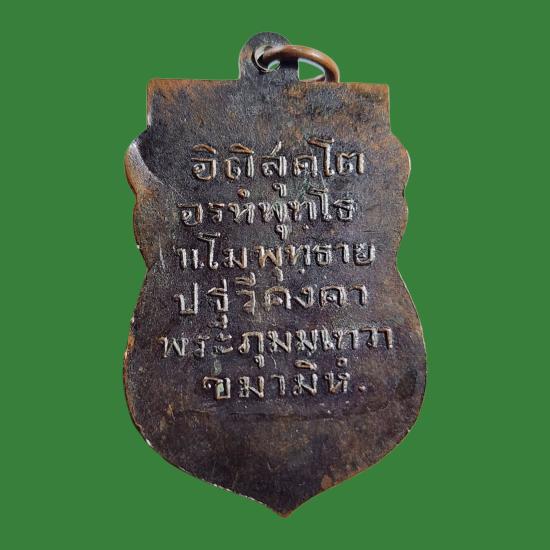 อิติสุคโต
อรหํพุทฺโธ
นโมพุทฺธาย
ปฐวีคงคา
พระภุมมฺเทวา
ขมามิหํ.